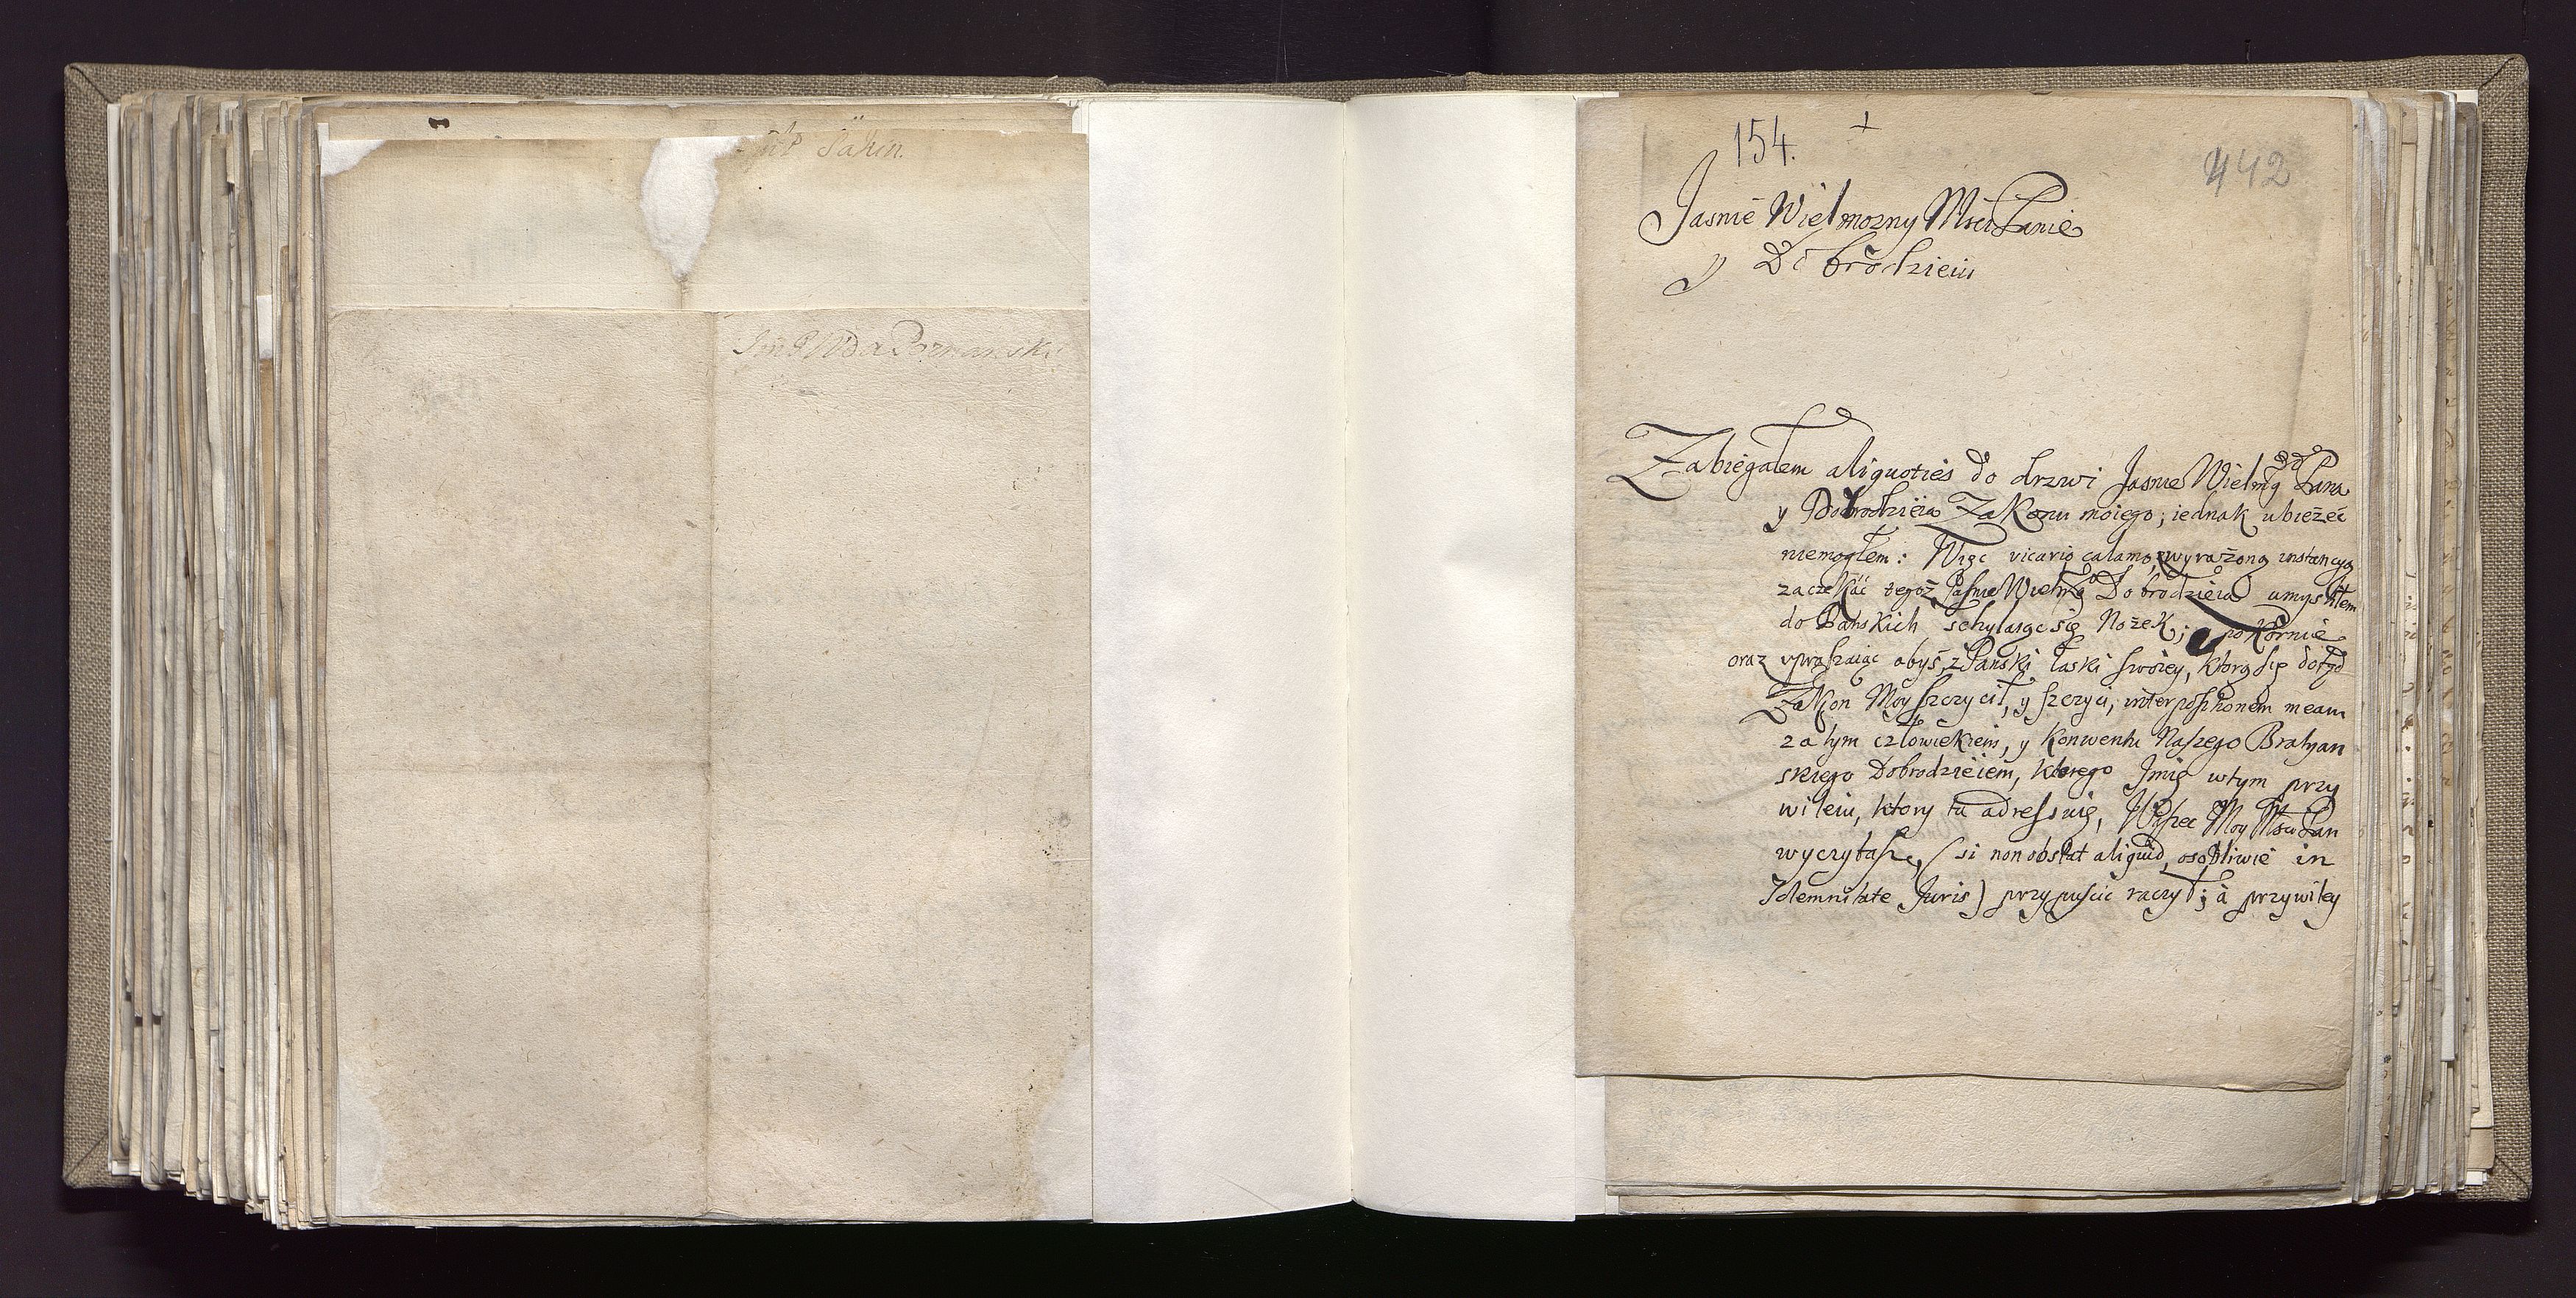 Sakin.
JmP Wda Poznanski
154. +
442
Jasnie Wielmozny Msci Panie
y Dobrodzieiu
Zabiegałem aliquoties do drzwi Jasnie Wielmg Pana
y Dobrodzieia Zakonu moiego; iednak ubieżeć
niemogłem: Więc vicario calamo, wyrażoną instancyą
zaczekać tegoż Jasnie Wielmg Dobrodzieia umysliłem
do Pańskich schylaiąc się Nożek; pokornie
oraz vpraszaiąc abyś z Pański łaski swoiey, ktorą się dotąd
Zakon Moy szczycił, y szczyci, interpositionem meam
za tym człowiekiem, y Konwentu Naszego Bratyan
skiego Dobrodzieiem, ktorego Jmię wtym przy
wileiu, ktory tu adressuię, Waszec Moy Msci Pan
wyczytasz, (si non obstat aliquid, osobliwie in
solemnitate Juris) przypuscic raczył; à przywiley